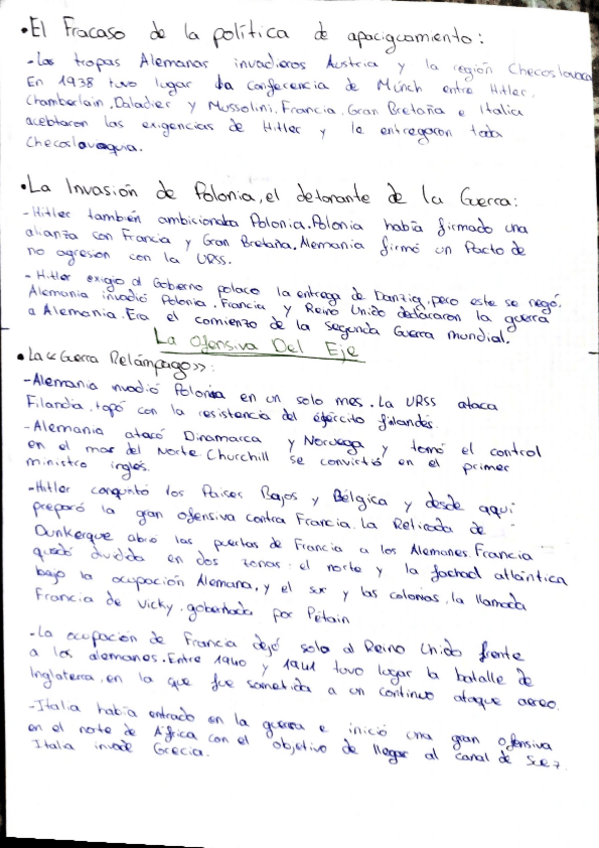 • El Fracaso de la política de apaciguamiento:
- Las tropas Alemanas invadieros Austria y la región Checoslovaca
En 1938 tuvo lugar la Conferencia de Münch entre Hitler,
Chamberlain, Daladier y Mussolini. Francia, Gran Bretaña e Italia
aceptaron las exigencias de Hitler y le entregaron toda
Checoslovaquia.
• La Invasión de Polonia, el detonante de la Guerra:
- Hitler también ambicionaba Polonia. Polonia había firmado una
alianza con Francia y Gran Bretaña. Alemania firmó un Pacto de
no agresion con la URSS.
- Hitler exigio al Gobierno polaco la entrega de Danzig, pero este se negó.
Alemania invadió Polonia. Francia y Reino Unido declararon la guerra
a Alemania. Era el comienzo de la Segunda Guerra mundial.
La Ofensiva Del Eje
• La «Guerra Relámpago»:
- Alemania invadió Polonia en un solo mes. La URSS ataca
Filandia, topó con la resistencia del ejército filandés.
- Alemania atacó Dinamarca y Noruega y tomó el control
en el mar del Norte. Churchill se convirtió en el primer
ministro inglés.
- Hitler conquistó los Países Bajos y Bélgica y desde aquí
preparó la gran ofensiva contra Francia. La Retirada de
Dunkerque abrió las puertas de Francia a los Alemanes. Francia
quedó dividida en dos zonas: el norte y la fachad atlántica
bajo la ocupación Alemana, y el sur y las colonias, la llamada
Francia de Vicky, gobertada por Pétain
- La ocupación de Francia dejó solo al Reino Unido frente
a los alemanes. Entre 1940 y 1941 tuvo lugar la batalle de
Inglaterra, en la que fue sometida a un continuo ataque aereo.
- Italia había entrado en la guerra e inició una gran ofensiva
en el norte de África con el objetivo de llegar al canal de Suez.
Itala invade Grecia.